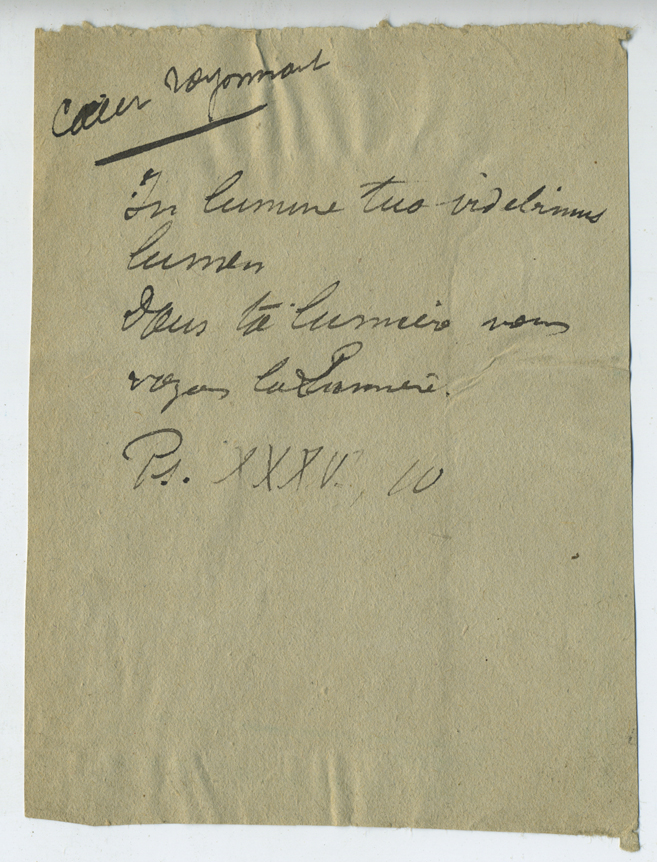 Cœur rayonnant
In lumine tuo videbimus
lumen
Dans ta lumière nous
voyons la Lumière.
Ps. XXXV, 10